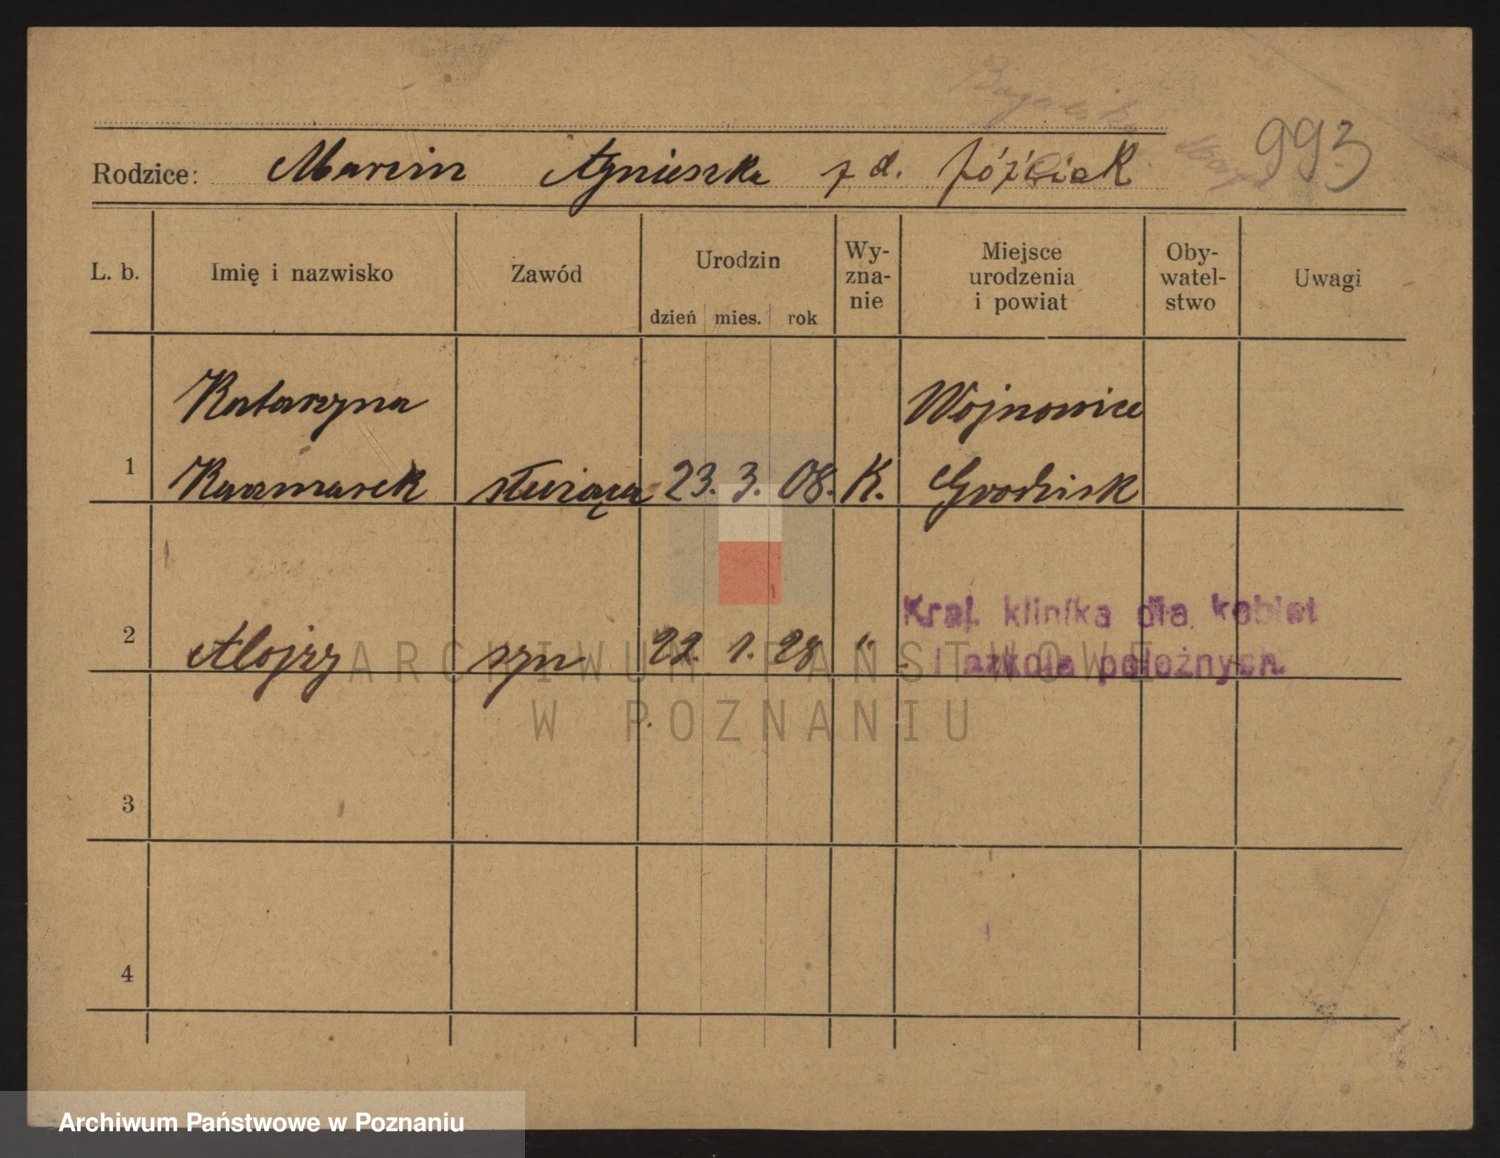 993
Rodzice: Marcin Agnieszka z d. Jóźwiak
L. b. Imię i nazwisko Zawód Urodzin Wy-zna-nie Miejsce urodzenia i powiat Oby-watel-stwo Uwagi
dzień mies. rok
Katarzyna Wojnowice
1 Kaczmarek służąca 23. 3. 08. K. Grodzisk
Kraj. klinika dla kobiet
2 Alojzy syn 22. 1. 28 "
i szkoła położnych.
ARCHIWUM PAŃSTWOWE
W POZNANIU
3
4
Archiwum Państwowe w Poznaniu